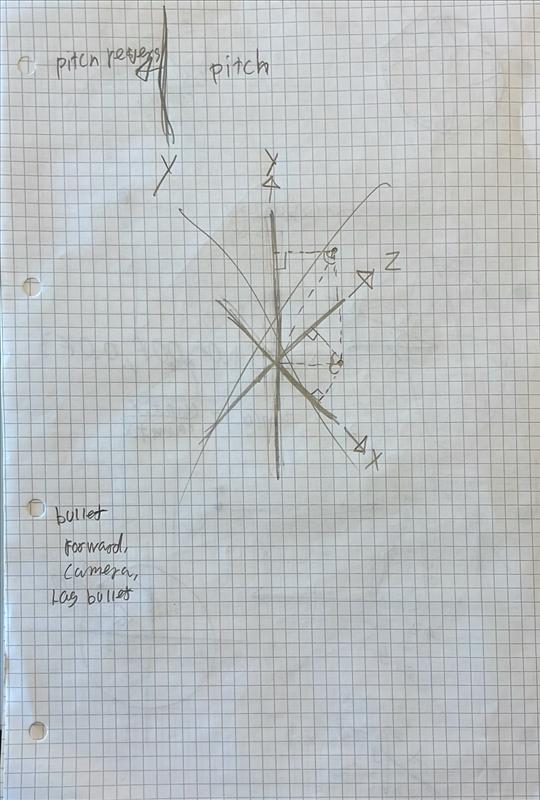 pitch revers
pitch
Y
Y
Z
X
bullet
Forward,
Camera,
Lag bullet